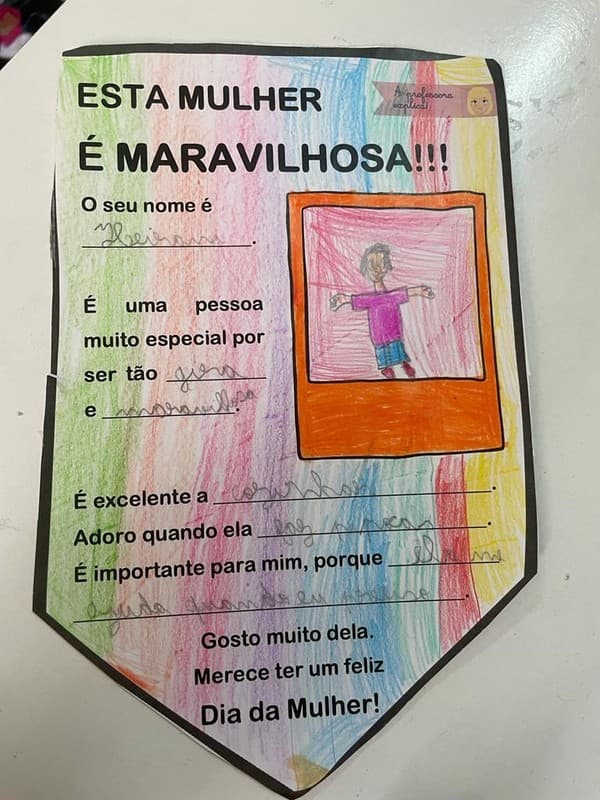 ESTA MULHER
A professora
explica!
É MARAVILHOSA!!!
O seu nome é
.
É uma pessoa
muito especial por
ser tão gira
e maravilhosa.
É excelente a cozinhar.
Adoro quando ela faz .
É importante para mim, porque ela me
ajuda quando eu preciso.
Gosto muito dela.
Merece ter um feliz
Dia da Mulher!